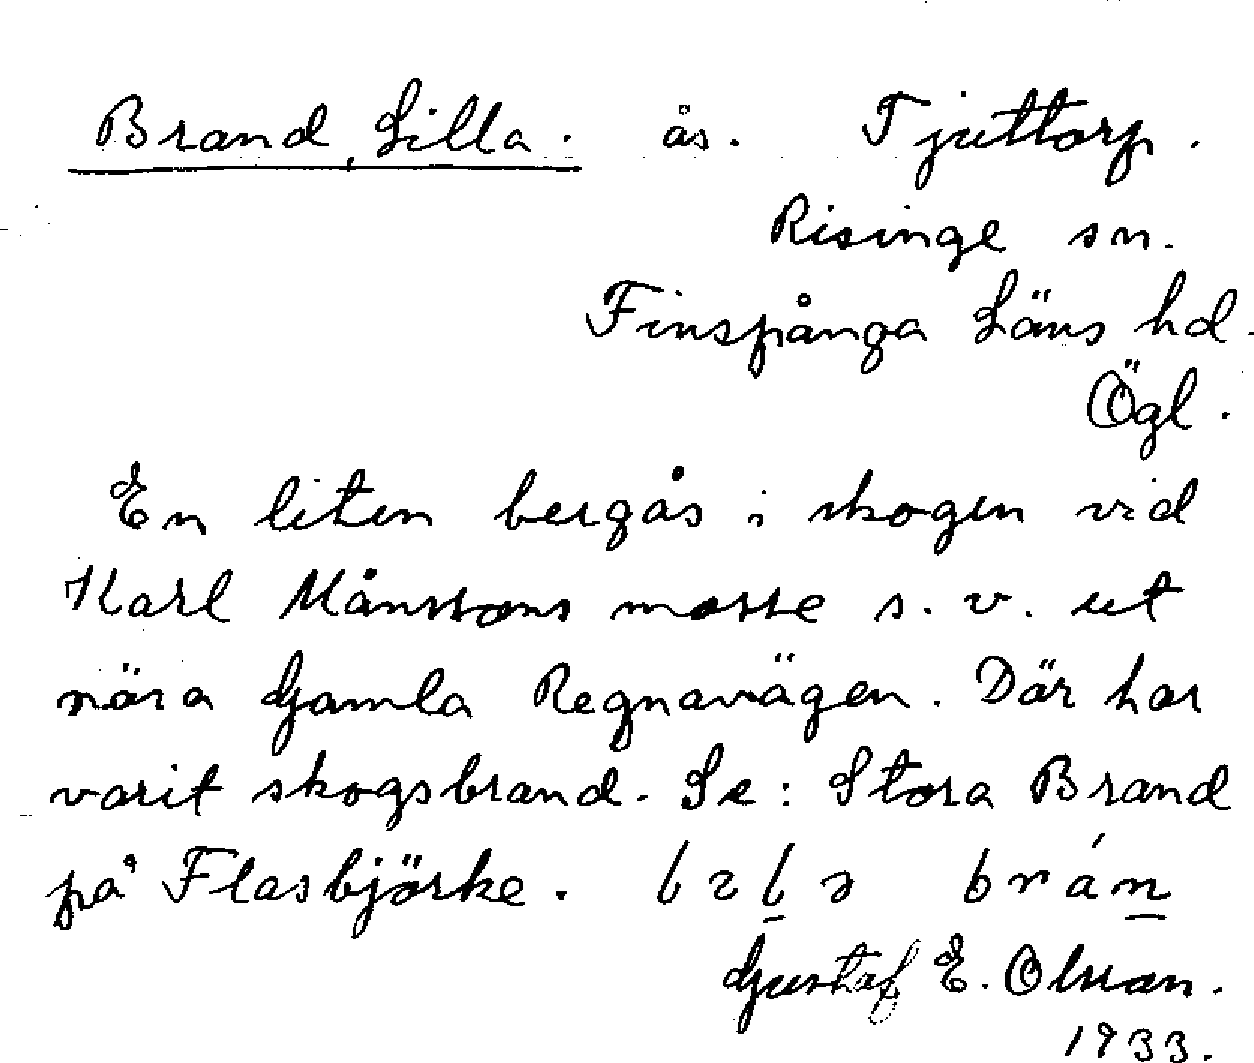 Brand, Lilla. ås. Tjuttorp.
Risinge sn.
Finspånga Läns hd.
Ögl.
En liten bergås i skogen vid
Karl Månssons mosse s. v. ut
nära Gamla Regnavägen. Där har
varit skogsbrand. Se: Stora Brand
på Flasbjörke. brán
Gustaf E. Olsson.
1933.